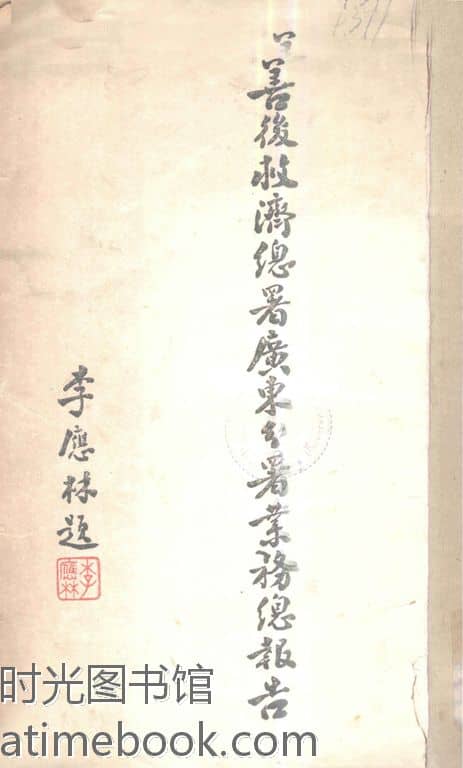 善後救濟總署廣東分署業務總報告
李應林題
李應林
时光图书馆
atimebook.com